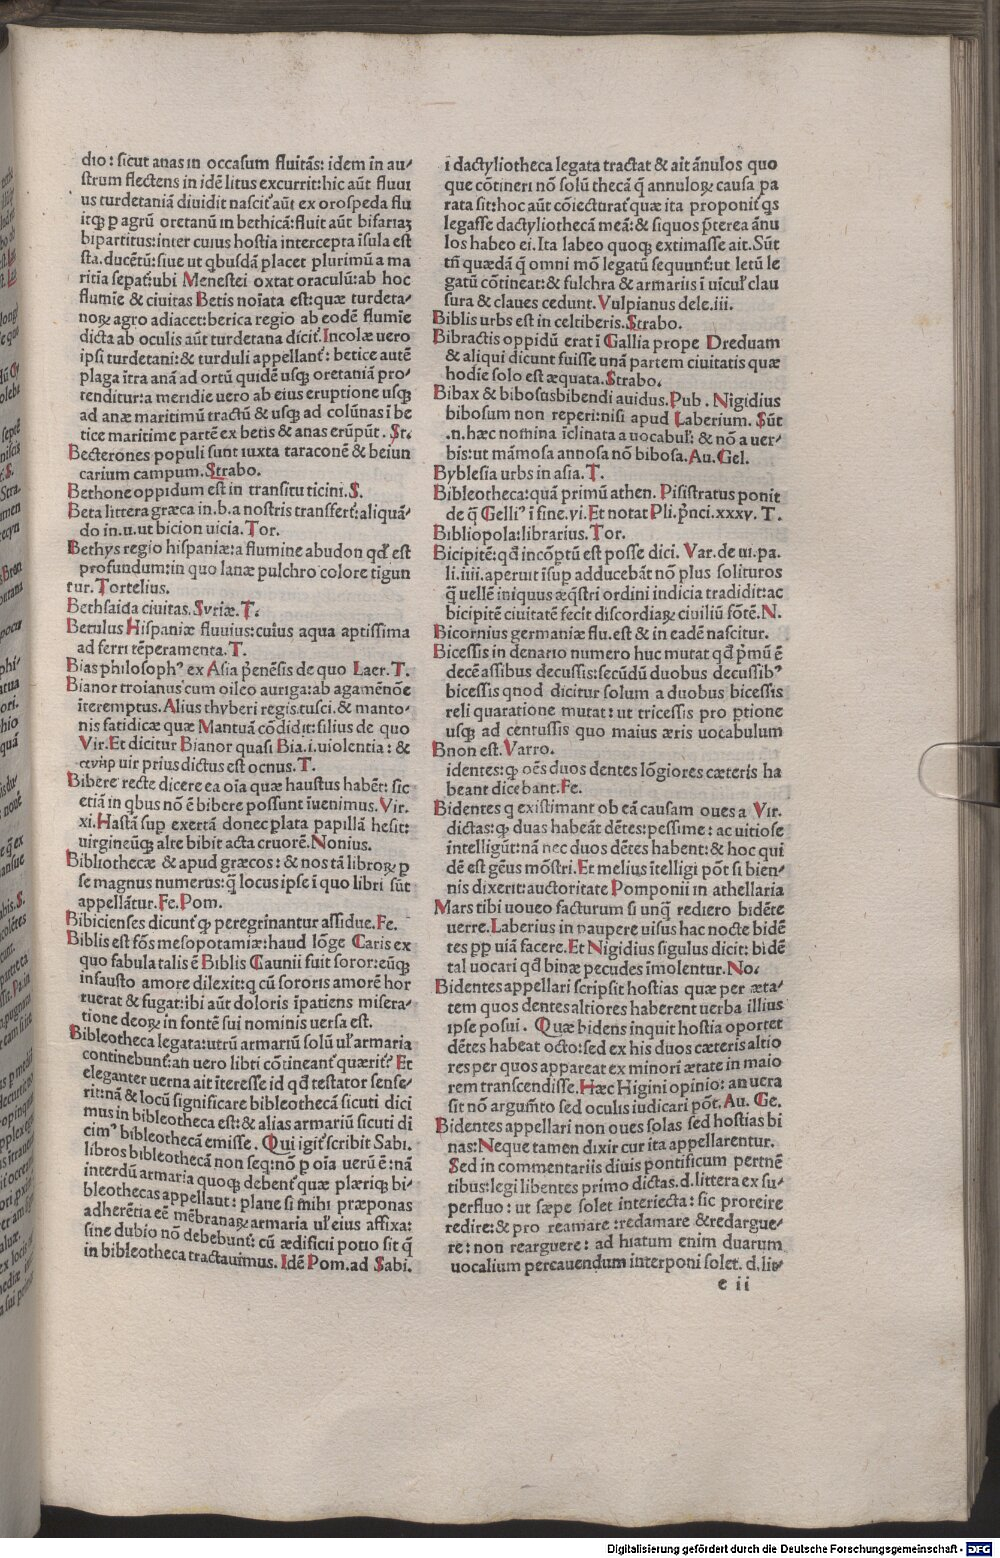 dio: sicut anas in occasum fluitās: idem in au⸗
strum flectens in idē litus excurrit: hic aūt fluui
us turdetaniā diuidit nascit᷑ aūt ex orospeda flu
itqꝫ ꝑ agrū oretanū in bethicā: fluit aūt bifariaꝫ
bipartitus: inter cuius hostia intercepta īsula est
sta. ducētū: siue ut qbusdā placet plurimū a ma
ritia sepat᷑: ubi Menestei oxtat oraculū: ab hoc
flumīe & ciuitas Betis noīata est: quæ turdeta⸗
noꝝ agro adiacet: berica regio ab eodē flumīe
dicta ab oculis aūt turdetana dicit᷑. Incolæ uero
ipsi turdetani: & turduli appellant᷑: betice autē
plaga ītra anā ad ortū quidē usqꝫ oretaniā pro⸗
tenditur: a meridie uero ab eius eruptione usqꝫ
ad anæ maritimū tractū & usqꝫ ad colūnas ī be
tice maritime partē ex betis & anas erūpūt. Sr.
Becterones populi sunt iuxta taraconē & beiun
carium campum. Strabo.
Bethone oppidum est in transitu ticini. S.
Beta littera græca in .b. a nostris transfert᷑: aliquā⸗
do in .u. ut bicion uicia. Tor.
Bethys regio hispaniæ: a flumine abudon qđ est
profundum: in quo lanæ pulchro colore tigun
tur. Tortelius.
Bethsaida ciuitas. Syriæ. T.
Betulus Hispaniæ fluuius: cuius aqua aptissima
ad ferri tēperamenta. T.
Bias philosophꝰ ex Asia p̄enēsis de quo Laer. T.
Bianor troianus cum oileo auriga: ab agamēnōe
īteremptus. Alius thyberi regis tusci. & manto⸗
nis fatidicæ quæ Mantuā cōdidit: filius de quo
Vir. Et dicitur Bianor quasi Bia. i. uiolentia: &
ανηρ uir prius dictus est ocnus. T.
Bibere recte dicere ea oīa quæ haustus habēt: sic
etiā in qbus nō ē bibere possunt īuenimus. Vir.
xi. Hastā suꝑ exertā donec ꝑlata papillā hesit:
uirgineūqꝫ alte bibit acta cruorē. Nonius.
Bibliothecæ & apud græcos: & nos tā libroꝝ ꝑ
se magnus numerus: q̄ locus ipse ī quo libri sūt
appellātur. Fe. Pom.
Bibicienses dicunt᷑ qꝫ peregrinantur assidue. Fe.
Biblis est fōs mesopotamiæ: haud lōge Caris ex
quo fabula talis ē Biblis Caunii fuit soror: eūqꝫ
infausto amore dilexit: q cū sororis amorē hor
ruerat & fugat: ibi aūt doloris īpatiens misera⸗
tione deoꝝ in fontē sui nominis uersa est.
Bibleotheca legata: utrū armariū solū ul᷑ armaria
continebunt᷑: an uero libti cōtineant᷑ quærit᷑? Et
eleganter uerna ait īteresse id qđ testator sense⸗
rit: nā & locū significare bibleothecā sicuti dici
mus in bibleotheca est: & alias armariū sicuti di
cimꝰ bibleothecā emisse. Qui igit᷑ scribit Sabi.
libros bibleothecā non seq: nō ꝑ oīa uerū ē: nā
interdū armaria quoqꝫ debent᷑ quæ plæriqꝫ bi⸗
bleothecas appellant: plane si mihi præponas
adherētia eē mēbranaꝝ armaria ul᷑ eius affixa:
sine dubio nō debebunt᷑: cū ædificii potio sit q̄
in bibleotheca tractauimus. Idē Pom. ad Sabi.
i dactyliotheca legata tractat & ait ānulos quo
que cōtineri nō solū thecā q̄ annuloꝝ causa pa
rata sit: hoc aūt cōiecturat᷑ quæ ita proponit qs
legasse dactyliothecā meā: & siquos p̄terea ānu
los habeo ei. Ita labeo quoqꝫ extimasse ait. Sūt
tn̄ quædā q̄ omni mō legatū sequunt᷑: ut letū le
gatū cōtineat: & fulchra & armariis ī uicul᷑ clau
sura & claues cedunt. Vulpianus de le. iii.
Biblis urbs est in celtiberis. Strabo.
Bibractis oppidū erat ī Gallia prope Dreduam
& aliqui dicunt fuisse unā partem ciuitatis quæ
hodie solo est æquata. Strabo.
Bibax & bibosus bibendi auidus. Pub. Nigidius
bibosum non reperi: nisi apud Laberium. Sūt
.n. hæc nomina īclinata a uocabul᷑: & nō a uer⸗
bis: ut māmosa annosa nō bibosa. Au. Gel.
Byblesia urbs in asia. T.
Bibleotheca: quā primū athen. Pisistratus ponit
de q̄ Gelliꝰ ī fine. vi. Et notat Pli. p̄nci. xxxv. T.
Bibliopola: librarius. Tor.
Bicipitē: qđ incōptū est posse dici. Var. de ui. pa.
li. iiii. aperuit īsuꝑ adducebāt nō plus solituros
q̄ uellē iniquus æq̄stri ordini indicia tradidit: ac
bicipitē ciuitatē fecit discordiaꝝ ciuiliū fōtē. N.
Bicornius germaniæ flu. est & in eadē nascitur.
Bicessis in denario numero huc mutat qđ p̄mū ē
decē assibus decussis: secūdū duobus decussibꝰ
bicessis qnod dicitur solum a duobus bicessis
reli quaratione mutat: ut tricessis pro ꝑtione
usqꝫ ad centussis quo maius æris uocabulum
Bnon est. Varro.
identes: qꝫ oēs duos dentes lōgiores cæteris ha
beant dicebant. Fe.
Bidentes q existimant ob eā causam oues a Vir.
dictas: qꝫ duas habeāt dētes: pessime: ac uitiose
intelligūt: nā nec duos dētes habent: & hoc qui
dē est gēus mōstri. Et melius ītelligi pōt si bien⸗
nis dixerit: auctoritate Pomponii in athellaria
Mars tibi uoueo facturum si unq̄ rediero bidēte
uerre. Laberius in paupere uisus hac nocte bidē
tes pp uiā facere. Et Nigidius figulus dicit: bidē
tal uocari qđ binæ pecudes īmolentur. No.
Bidentes appellari scripsit hostias quæ per æta⸗
tem quos dentes altiores haberent uerba illius
ipse posui. Quæ bidens inquit hostia oportet
dētes habeat octo: sed ex his duos cæteris altio
res per quos appareat ex minori ætate in maio
rem transcendisse. Hæc Higini opinio: an uera
sit nō argumto sed oculis iudicari pōt. Au. Ge.
Bidentes appellari non oues solas sed hostias bi
nas: Neque tamen dixir cur ita appellarentur.
Sed in commentariis diuis pontificum pertnē
tibus: legi libentes primo dictas .d. littera ex su⸗
perfluo: ut sæpe solet interiecta: sic proreire
redire: & pro reamare: redamare & redargue⸗
re: non rearguere: ad hiatum enim duarum
uocalium percauendum interponi solet .d. lit⸗
e ii
Digitalisierung gefördert durch die Deutsche Forschungsgemeinschaft - DFG